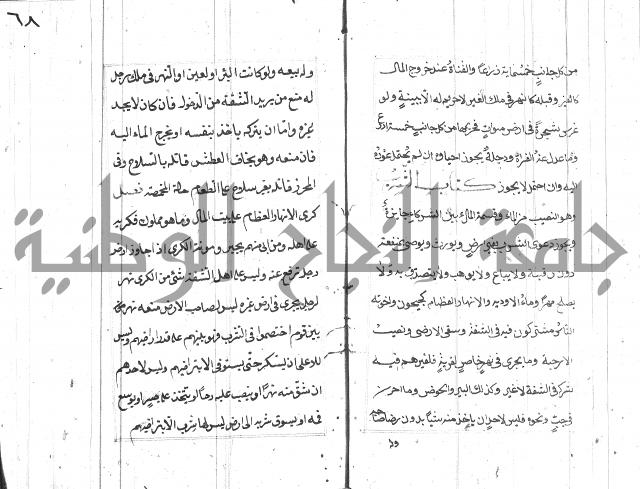 ٦٨
من كل جانب خمسماية ذرعا والقناة عند خروج الماء
كالبئر وقبله كالنهر في ملك الغير لا حريم له الا ببينة ولو
غرس شجرة في ارض موات فحريمها من كل جانب خمسة اذرع
وما عدل عنه الفراة ودجلة يجوز احياؤه ان لم يحتمل عوده
اليه وان احتمل لا يجوز كتاب الشرب
وهو النصيب من الماء وقسمة الماء بين الشركاء جايزة
ويجوز دعوى الشرب بغير ارض ويورث ويوصى بمنفعته
دون رقبته ولا يباع ولا يوهب ولا يتصدق به ولا
يصلح مهرا وماء الاودية والانهار العظام كجيحون واخوته
الناس مشتركون فيه في الشفة وسقى الاراضي ونصب
الارحية وما يجري في نهر خاص لقرية فلغيرهم فيه
شركة في الشفة لا غير وكذلك البير والحوض وما احرز
في جب ونحوه فليس لاحد ان ياخذ منه شيئا بدون رضا صاحبه
وله بيعه ولو كانت البئر او لعين او النهر في ملك رجل
له منع من يريد الشفة من الدخول فان كان لا يجد
غيره واما ان يتركه ياخذ بنفسه او يخرج الماء اليه
فان منعه وهو يخاف العطش قاتله بالسلاح وفي
المحرز قاتله بغير سلاح كما الطعام حالة المخمصة فصل
كرى الانهار العظام على بيت المال وما هو مملوك فكريه
على اهله ومن ابى منهم يجبر ومونة الكرى اذا جاوز ارض
رجل ترفع عنه وليس على اهل الشفة شئ من الكرى نهر
لرجل يجري في ارض غيره ليس لصاحب الارض منعه نهر
بين قوم اختصموا في الشرب فهو بينهم على قدر اراضيهم وليس
للاعلى ان يسكر حتى يستوفي الا بتراضيهم وليس لاحدهم
ان يشق منه نهرا او ينصب عليه رحا او يتخذ عليه جسرا او يوسع
فمه او يسوق شربه الى ارض ليس لها شرب الا بتراضيهم
جامعة النجاح الوطنية